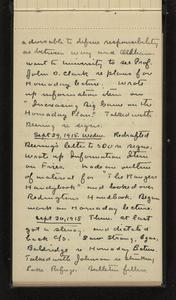 advisable to define responsibility
as between Winy and Oldham
went to University to see Prof.
John D. Clark re plans for
Hornaday lecture. Wrote
up information item on
"Increasing Big Game on the
Hornaday Plan." Talked with
Reening re signs.
Sept 29, 1915. Wedn. Redrafted
Reening's letter to 800 M re signs.
Wrote up Information Item
on Fires. Made an outline
of material for "The Rangers
Handybook" and looked over
Redingtons Handbook. Began
work on Hornaday lecture.
Sept 30, 1915 Thurs. at last
got a steno, and dictated
back G/S. Saw Strong, Egan,
Baldridge re Hornaday lecture.
Talked with Johnson re
Lake Refuge. Bulletin fillers